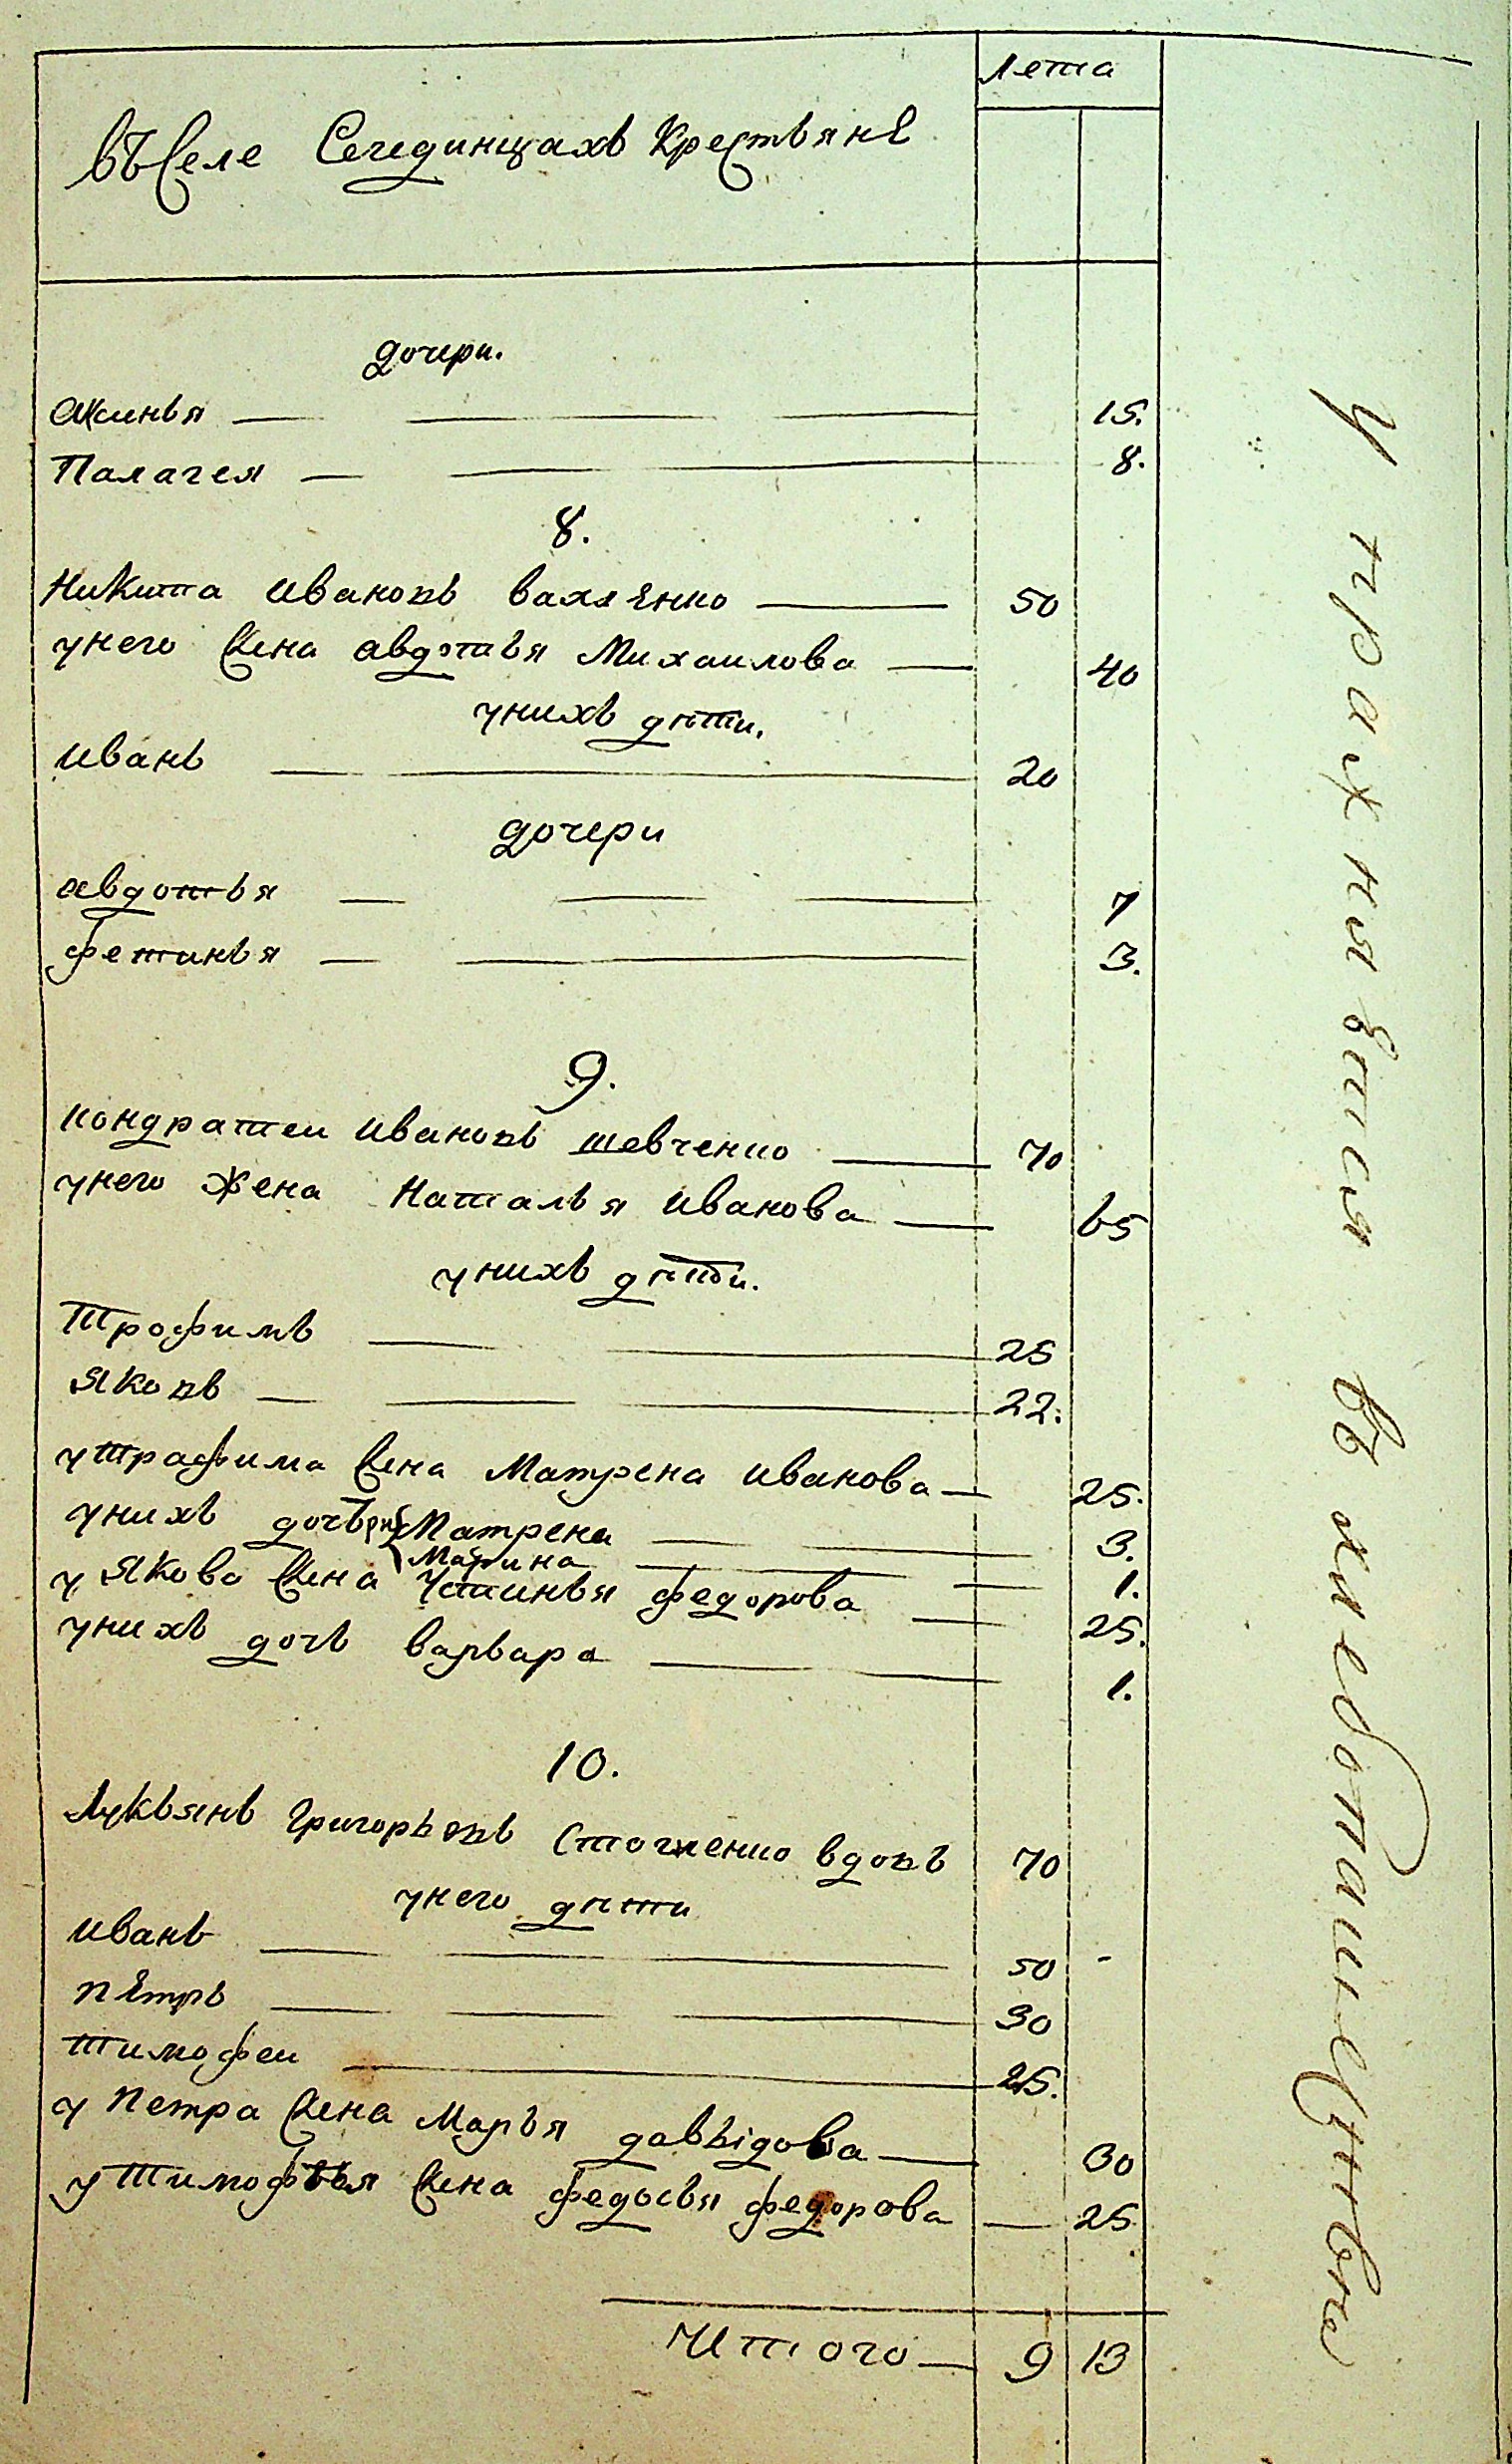 Лета
въ Селе Сегединцахъ Крестьянѣ
дочери.
Аксинья 15.
Палагея 8.
8.
Никита Ивановъ Вахленко 50
у него Жена Авдотья Михаилова 40
у нихъ дѣти.
Иванъ 20
дочери
Авдотья 7
Фетинья 3.
9.
Кондратеи Ивановъ Шевченко 70
у него Жена Наталья Иванова 65
у нихъ дѣти.
Трофимъ 25
Яковъ 22.
у Трафима Жена Матрена Иванова 25.
у нихъ дочери Матрена 3.
Марина 1.
у Якова Жена Устинья Федорова 25.
у нихъ дочь Варвара 1.
10.
Лукьянъ Григорьевъ вдовъ 70
у него дѣти
Иванъ 50
Пѣтръ 30
Тимофеи 25.
у Петра Жена Марья Давыдова 30
у Тимофѣя Жена Федосья Федорова 25
Итого 9 13
Упражняѣтся въ хлебопашественн